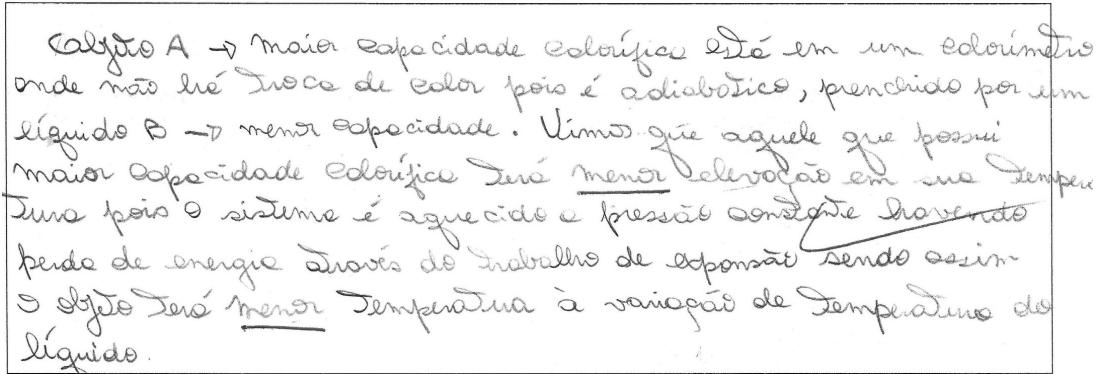 Objeto A → maior capacidade calorífica está em um calorímetro
onde não há troca de calor pois é adiabático, prenchido por um
líquido B → menor capacidade. Vimos que aquele que possui
maior capacidade calorífica terá menor elevação em sua tempera
tura pois o sistema é aquecido a pressão constante havendo
perda de energia através do trabalho de expansão sendo assim
o objeto terá menor temperatura à variação de temperatura do
líquido.